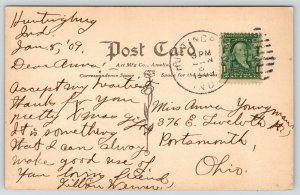 Huntingburg
Ind.
Jan. 5, '09.
Post Card
Art Mfg. Co., Amelia
Dear Anna!
Correspondence
Space for the
HUNTINGBURG
PM
IND
Accept my hearties
thanks for your
pretty Xmas gift
It is something
that I can always
make good use of
Your loving friend,
Miss Anna Youngman
376 E. Twelvth St.
Portsmouth,
Ohio.